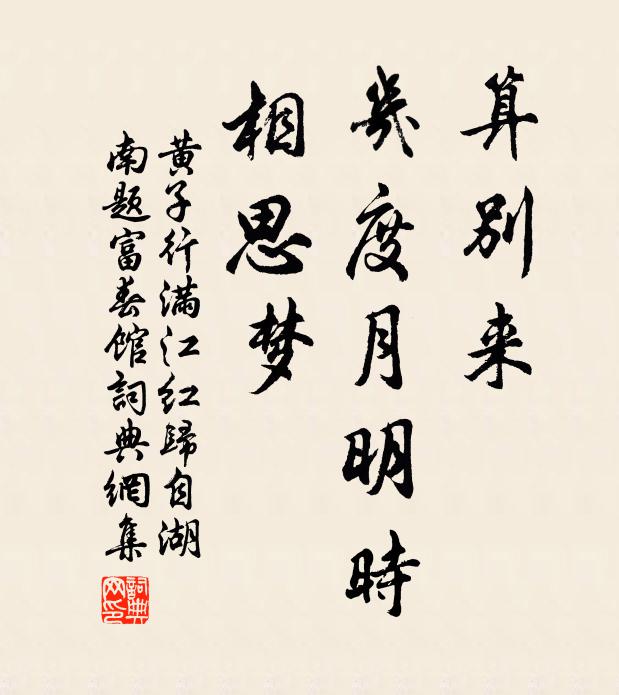 算别来
幾度月明時
相思梦
黄子行满江红歸自湖
南题富春館詞典網集
詞典网印